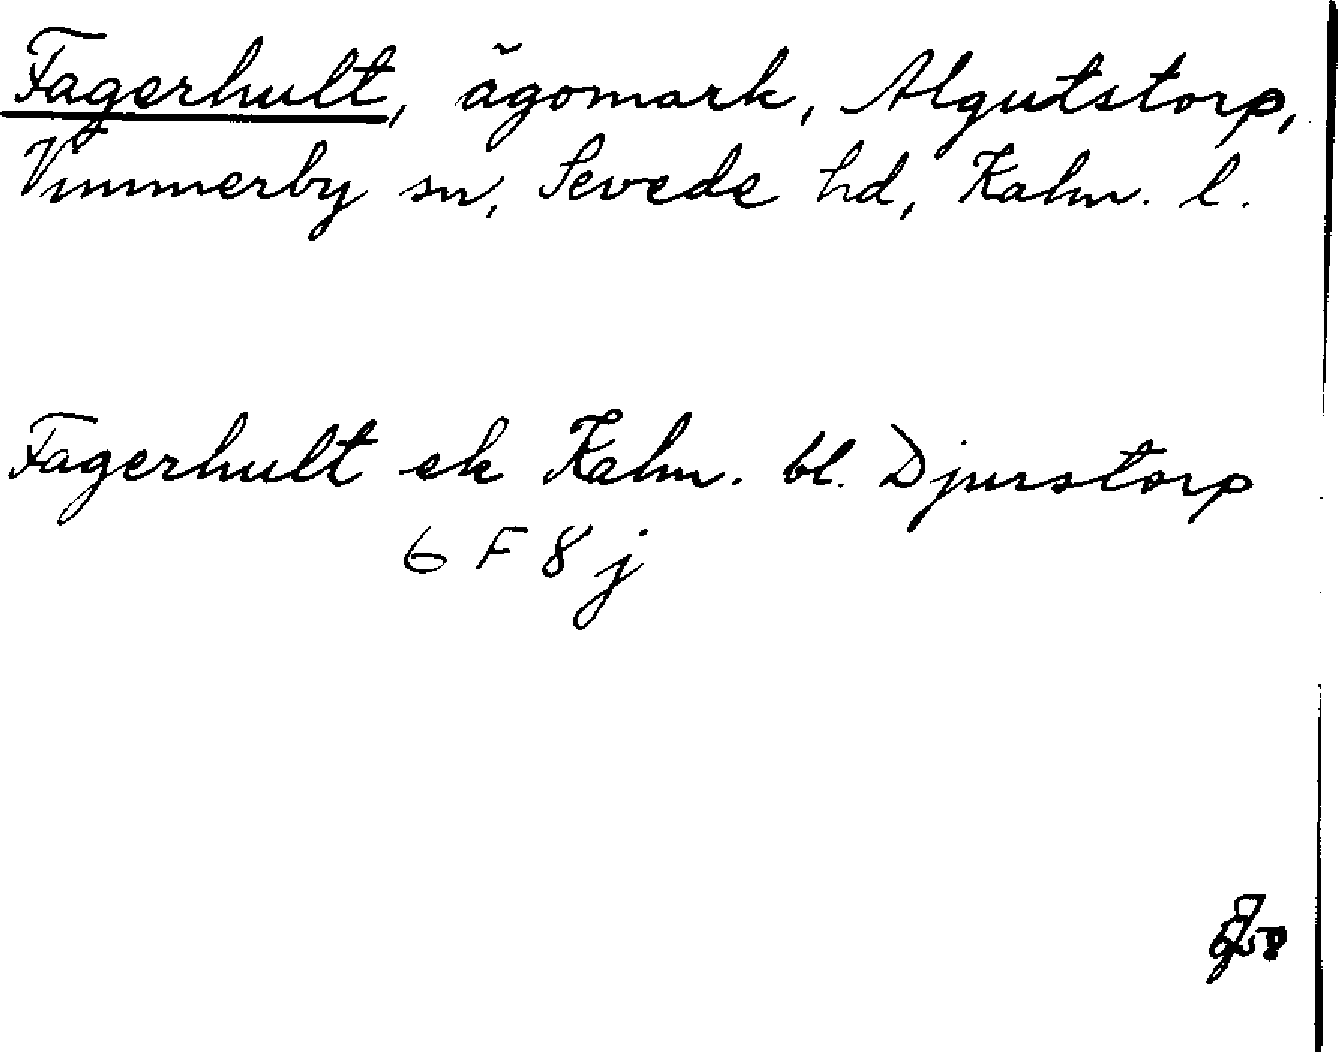 Fagerhult, ägomark, Algutstorp,
Vimmerby sn, Sevede hd, Kalm. l.
Fagerhult ek Kalm. bl. Djurstorp
6 F 8 j